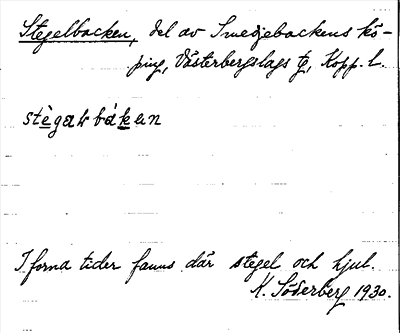 Stegelbacken, del av Smedjebackens kö-
ping, Västerbergslags tg, Kopp. l.
I forna tider fanns där stegel och hjul.
K. Söderberg 1930.